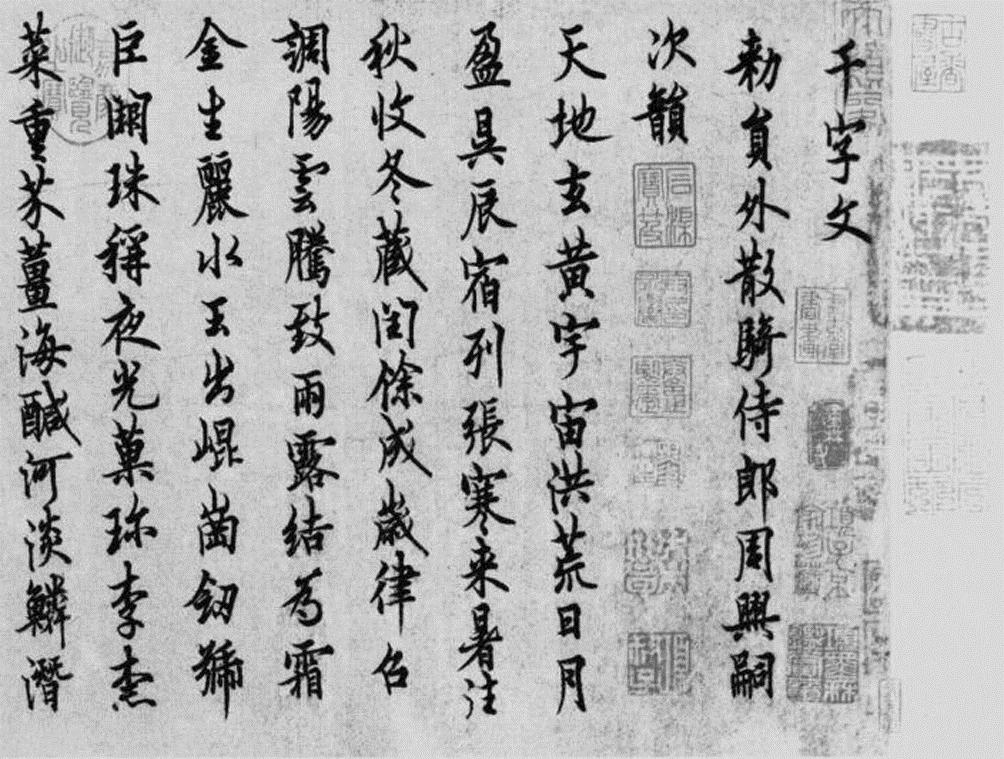 千字文
勅員外散騎侍郎周興嗣
次韻
天地玄黃宇宙洪荒日月
盈昃辰宿列張寒来暑往
秋收冬藏閏餘成歲律召
調陽雲騰致雨露結為霜
金生麗水玉出崐崗劒號
巨闕珠稱夜光菓珎李柰
菜重芥薑海醎河淡鱗潛